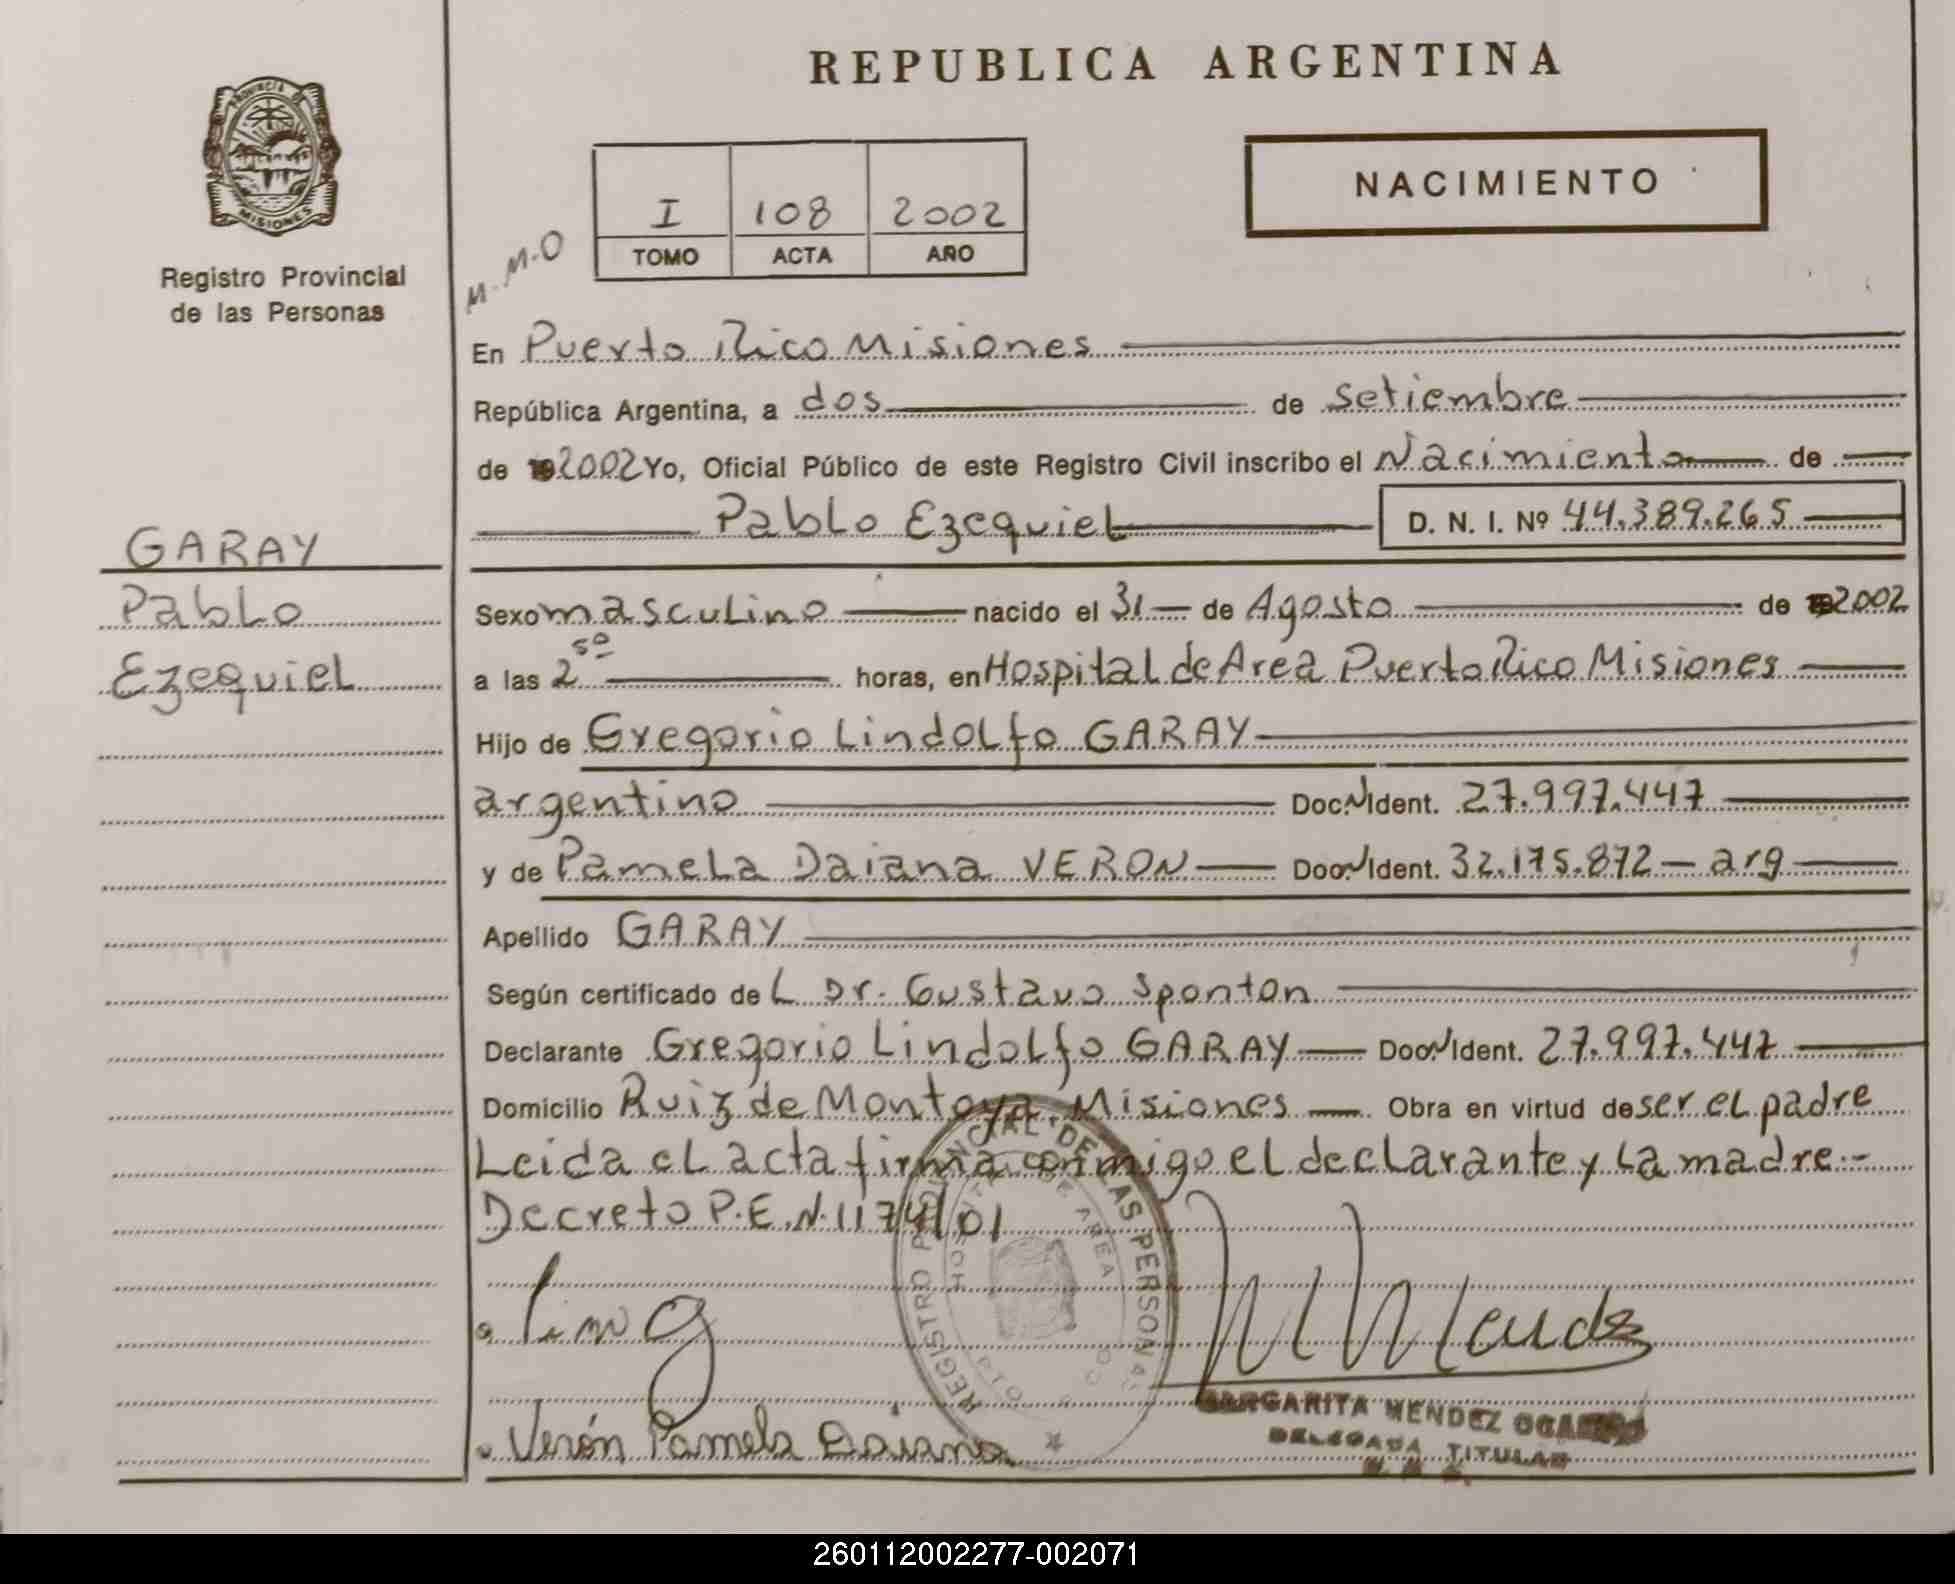 REPUBLICA ARGENTINA
PROVINCIA DE
MISIONES
Registro Provincial
de las Personas
NACIMIENTO
I 108 2002
TOMO ACTA AÑO
M.M.O
En Puerto Rico Misiones
República Argentina, a dos de setiembre
de 192002 Yo, Oficial Público de este Registro Civil inscribo el Nacimiento de
Pablo Ezequiel D. N. I. Nº 44.389.265
GARAY
Pablo
Ezequiel
Sexo masculino nacido el 31 de Agosto de 2002
a las 2 50 horas, en Hospital de Area Puerto Rico Misiones
Hijo de Gregorio Lindolfo GARAY
argentino Doc. N Ident. 27.997.447
y de Pamela Daiana VERON Doc. N Ident. 32.175.872 - arg
Apellido GARAY
Según certificado del Dr. Gustavo Sponton
Declarante Gregorio Lindolfo GARAY Doc. N Ident. 27.997.447
Domicilio Ruiz de Montoya Misiones Obra en virtud de ser el padre
Leida el acta firma conmigo el declarante y la madre.-
Decreto P.E.N. 1174/01
REGISTRO PROVINCIAL DE LAS PERSONAS
HOSPITAL DE AREA
Verón Pamela Daiana
MARGARITA MENDEZ OCAMPO
DELEGADA TITULAR
260112002277-002071